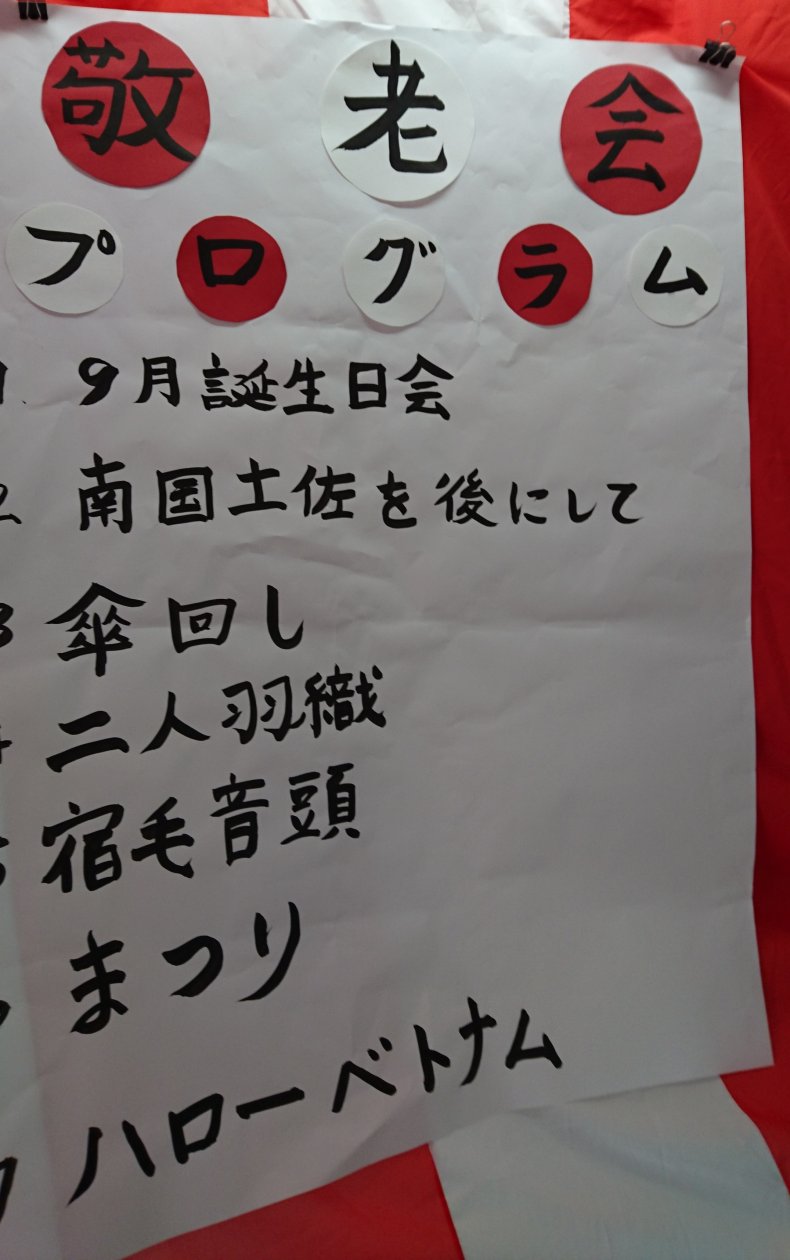 敬老会
プログラム
1. 9月誕生日会
2 南国土佐を後にして
3 傘回し
4 二人羽織
5 宿毛音頭
まつり
7 ハローベトナム